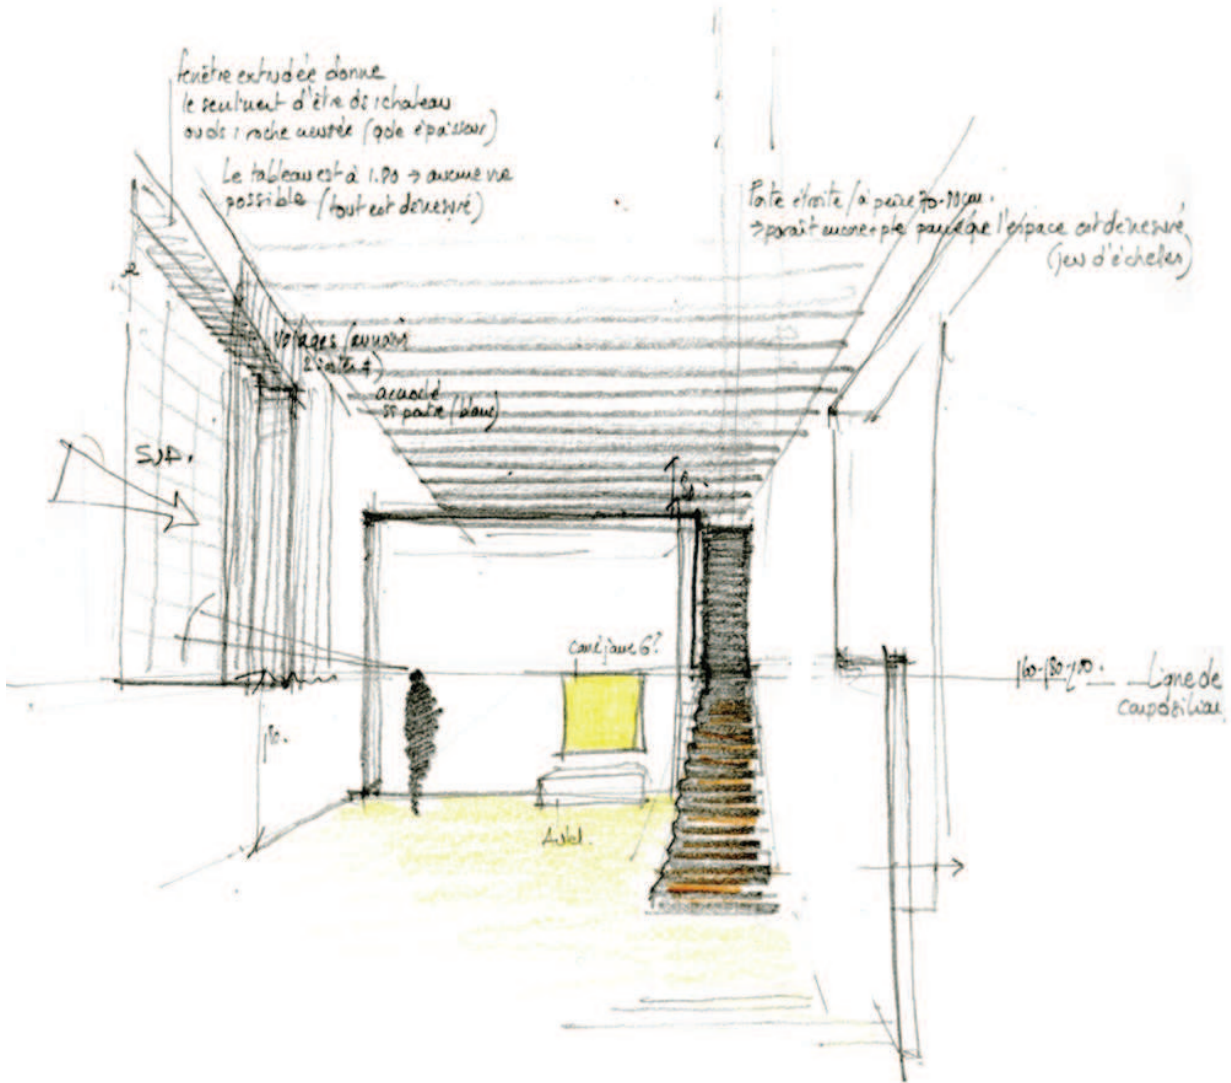 fenêtre extrudée donne
le sentiment d'être ds 1 chateau
ou ds 1 roche creusée (qde épaisseur)
Le tableau est à 1.80 → aucune vue
possible (tout est démesuré)
Porte étroite / à peine 70-80 cm.
→ paraît encore + pte parce que l'espace est démesuré
(jeu d'échelles)
voilages
acousté
ss poutre (blanc)
SUD.
carré jaune 6?
160-180-200. Ligne de
composition
180.
Autel.